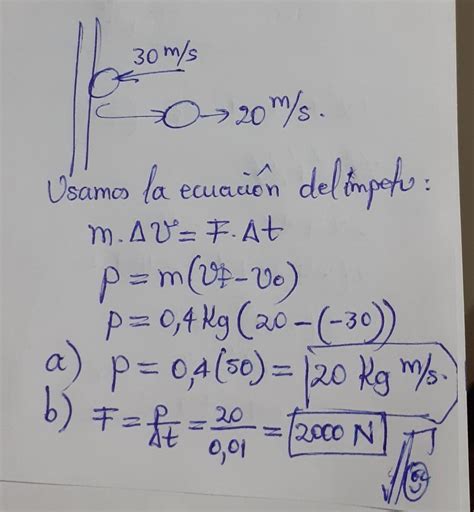 30 m/s
20 m/s.
Usamos la ecuación del ímpetu:
m.Δv = F.Δt
p = m(vf - vo)
p = 0,4 Kg (20 - (-30))
a) p = 0,4(50) = 20 Kg m/s.
b) F = p/Δt = 20/0,01 = 2000 N